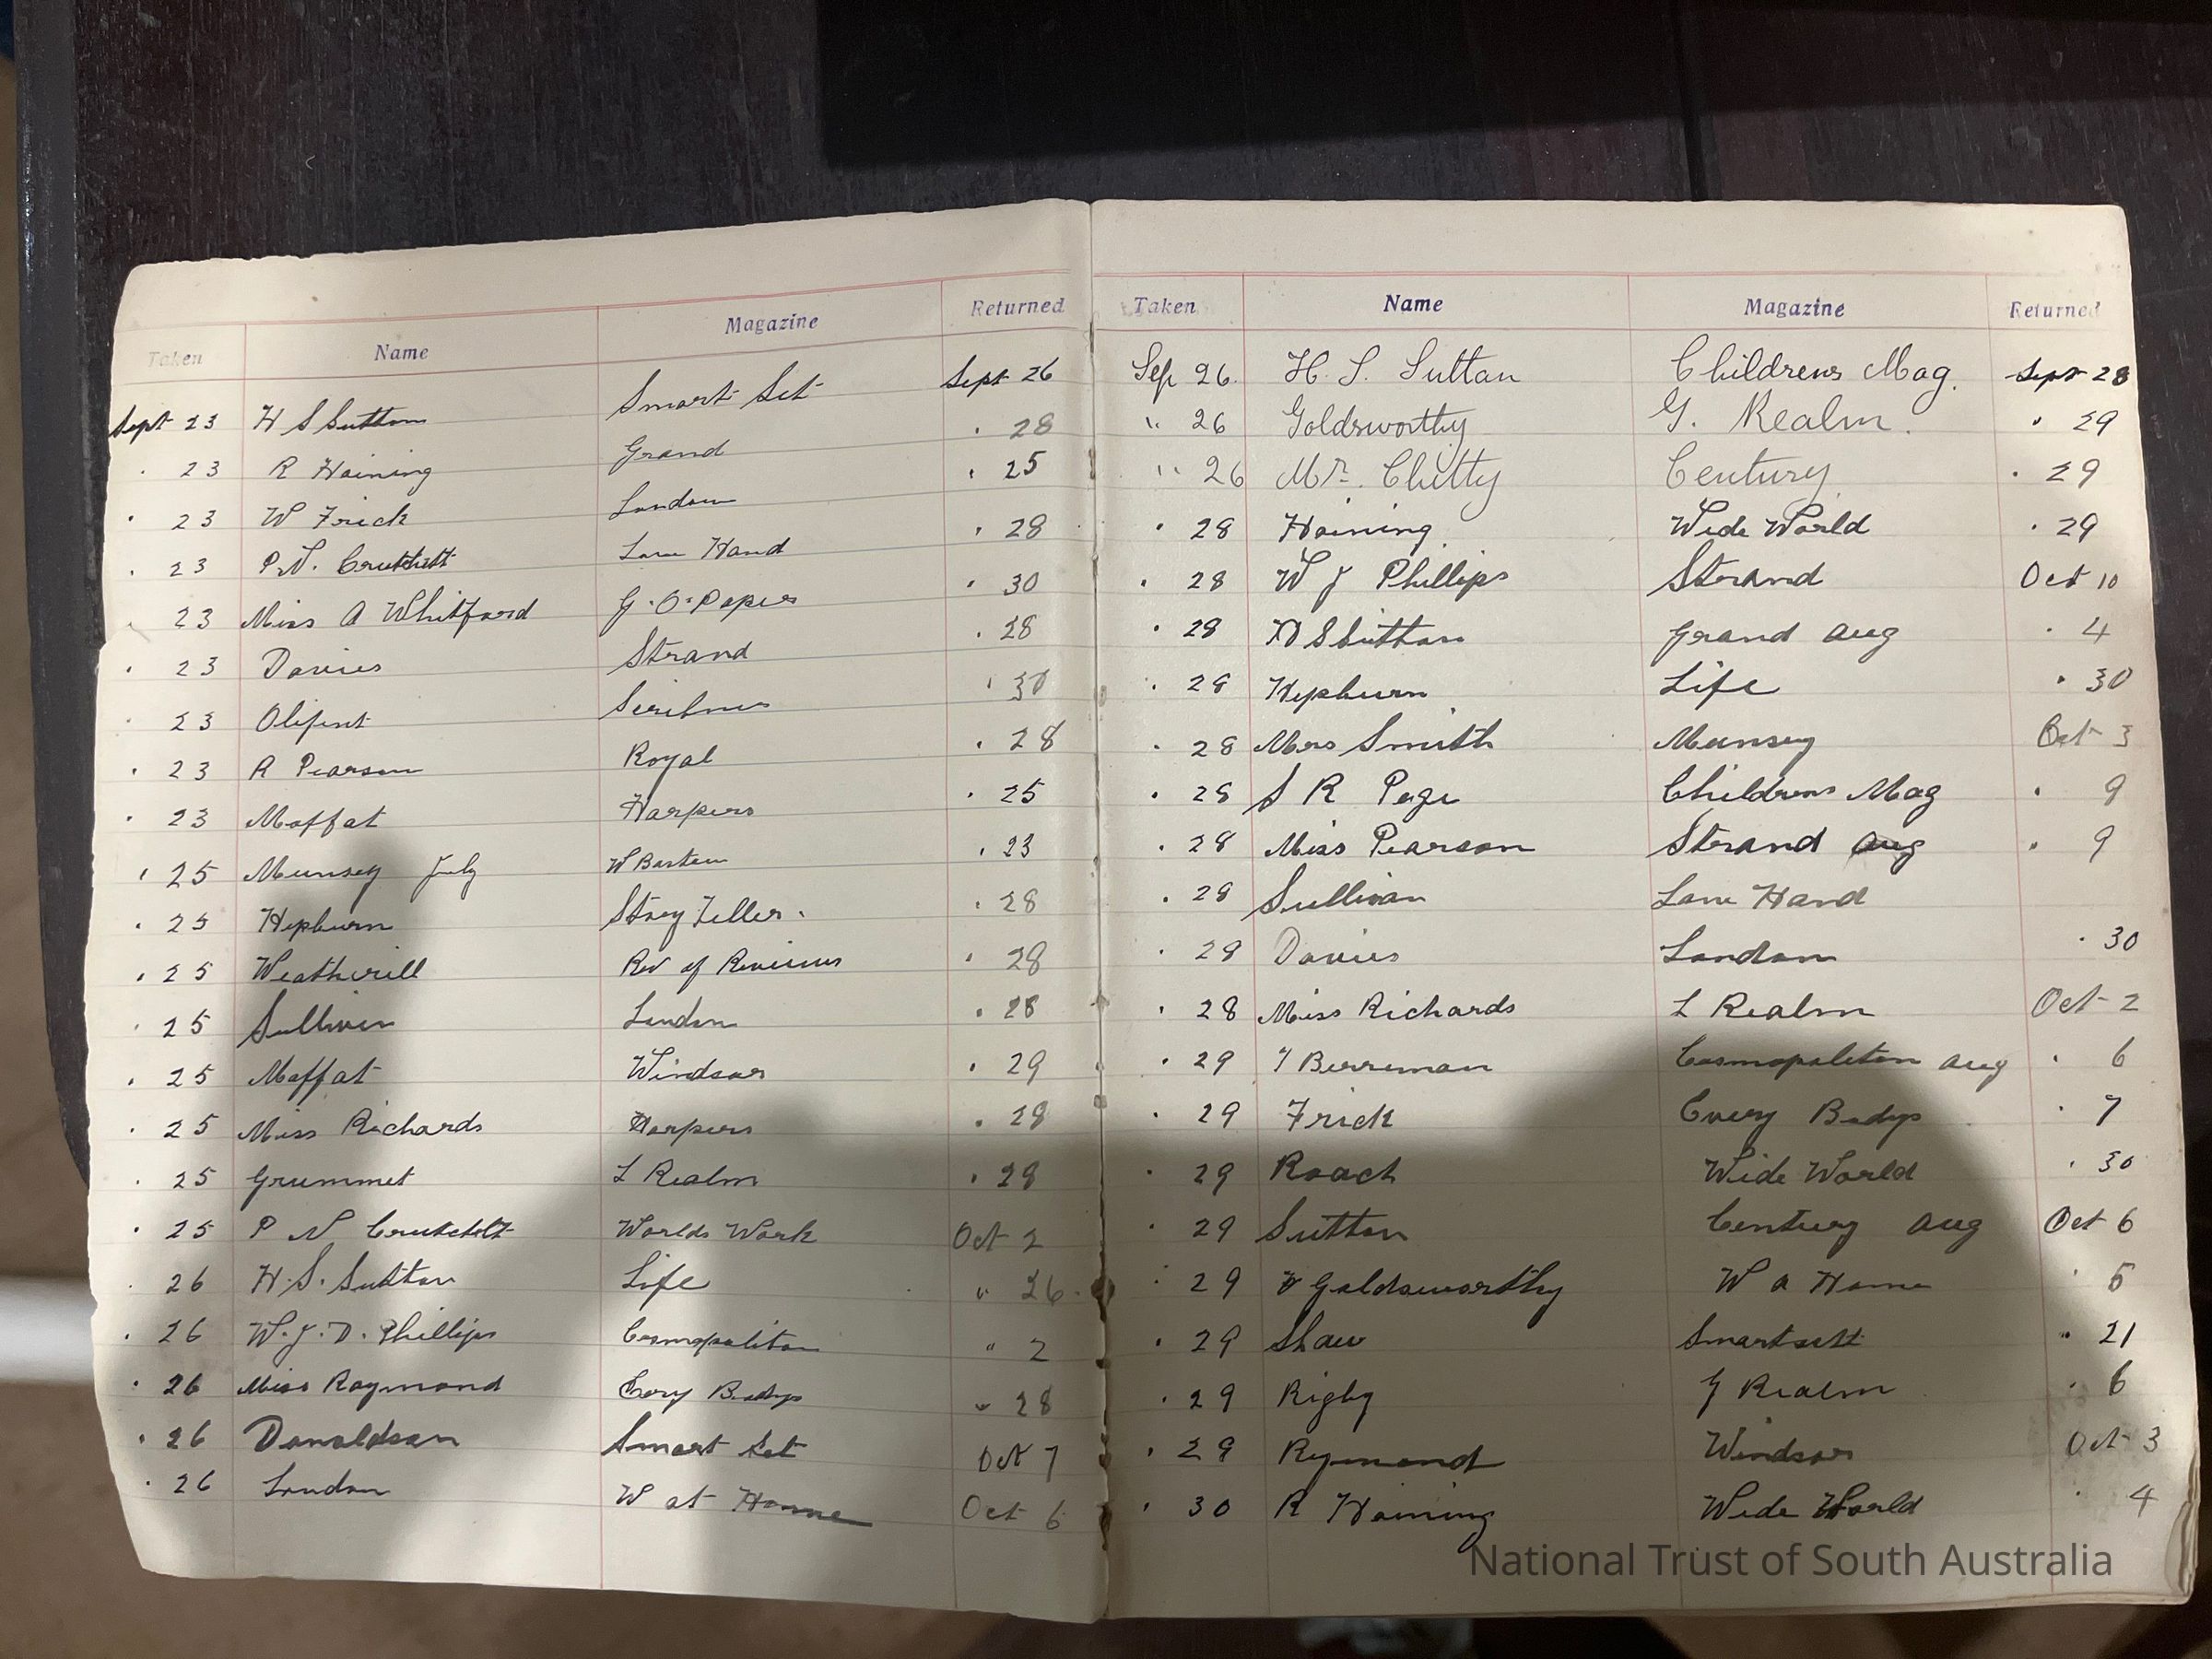 Taken Name Magazine Returned
Sept 23 H S Sutton Smart Set Sept 26
" 23 R Haining Grand " 28
" 23 W Frick London " 25
" 23 P.N. Crutchett Lone Hand " 28
" 23 Miss A Whitford G.O. Papers " 30
" 23 Davies Strand " 28
" 23 Olifent Scribners " 30
" 23 A Pearson Royal " 28
" 23 Moffat Harpers " 25
" 25 Munsey July W Bastow " 23
" 25 Hepburn Story Teller. " 28
" 25 Weatherill Rev of Reviews " 28
" 25 Sullivan London " 28
" 25 Moffat Windsor " 29
" 25 Miss Richards Harpers " 28
" 25 Grummet L Realm " 28
" 25 P N Crutchett Worlds Work Oct 2
" 26 H.S. Sutton Life " 26
" 26 W.J.D. Phillips Cosmopoliton " 2
" 26 Miss Raymond Every Bodys " 28
" 26 Donaldson Smart Set Oct 7
" 26 London W at Home Oct 6
Taken Name Magazine Returned
Sep 26. H. S. Sutton Childrens Mag. Sept 28
" 26 Goldsworthy G. Realm. " 29
" 26 Mr. Chitty Century " 29
" 28 Haining Wide World " 29
" 28 W J Phillips Strand Oct 10
" 28 H S Sutton Grand Aug " 4
" 28 Hepburn Life " 30
" 28 Mrs Smith Munsey Oct 3
" 28 S R Page Childrens Mag " 9
" 28 Miss Pearson Strand Aug " 9
" 28 Sullivan Lone Hand
" 28 Davies London " 30
" 28 Miss Richards L Realm Oct 2
" 29 Berriman Cosmopoliton Aug " 6
" 29 Frick Every Bodys " 7
" 29 Roach Wide World " 30
" 29 Sutton Century Aug Oct 6
" 29 Goldsworthy W a Home " 5
" 29 Shaw Smartsett " 21
" 29 Rigby G Realm " 6
" 29 Rymond Windsor Oct 3
" 30 R Haining Wide World " 4
National Trust of South Australia